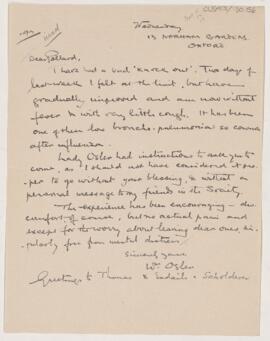 Wednesday
13 NORHAM GARDENS
OXFORD
Dear Pollard,
I have had a bad 'knock out'. Two days of
last week I felt at the limit, but have
gradually improved and am now without
fever & with very little cough. It has been
one of these low broncho-pneumonias so common
after influenza.
Lady Osler had instructions to ask you to
come, as I should not have considered it pro-
per to go without your blessing, & without a
personal message to my friends in the Society.
The experience has been encouraging – dis
comfort of course, but no actual pain and
except for the worry about leaving dear ones, si
gularly free from mental distress.
Sincerely yours
Wm Osler
Greetings to Thomas & Esdaile & Scholderer